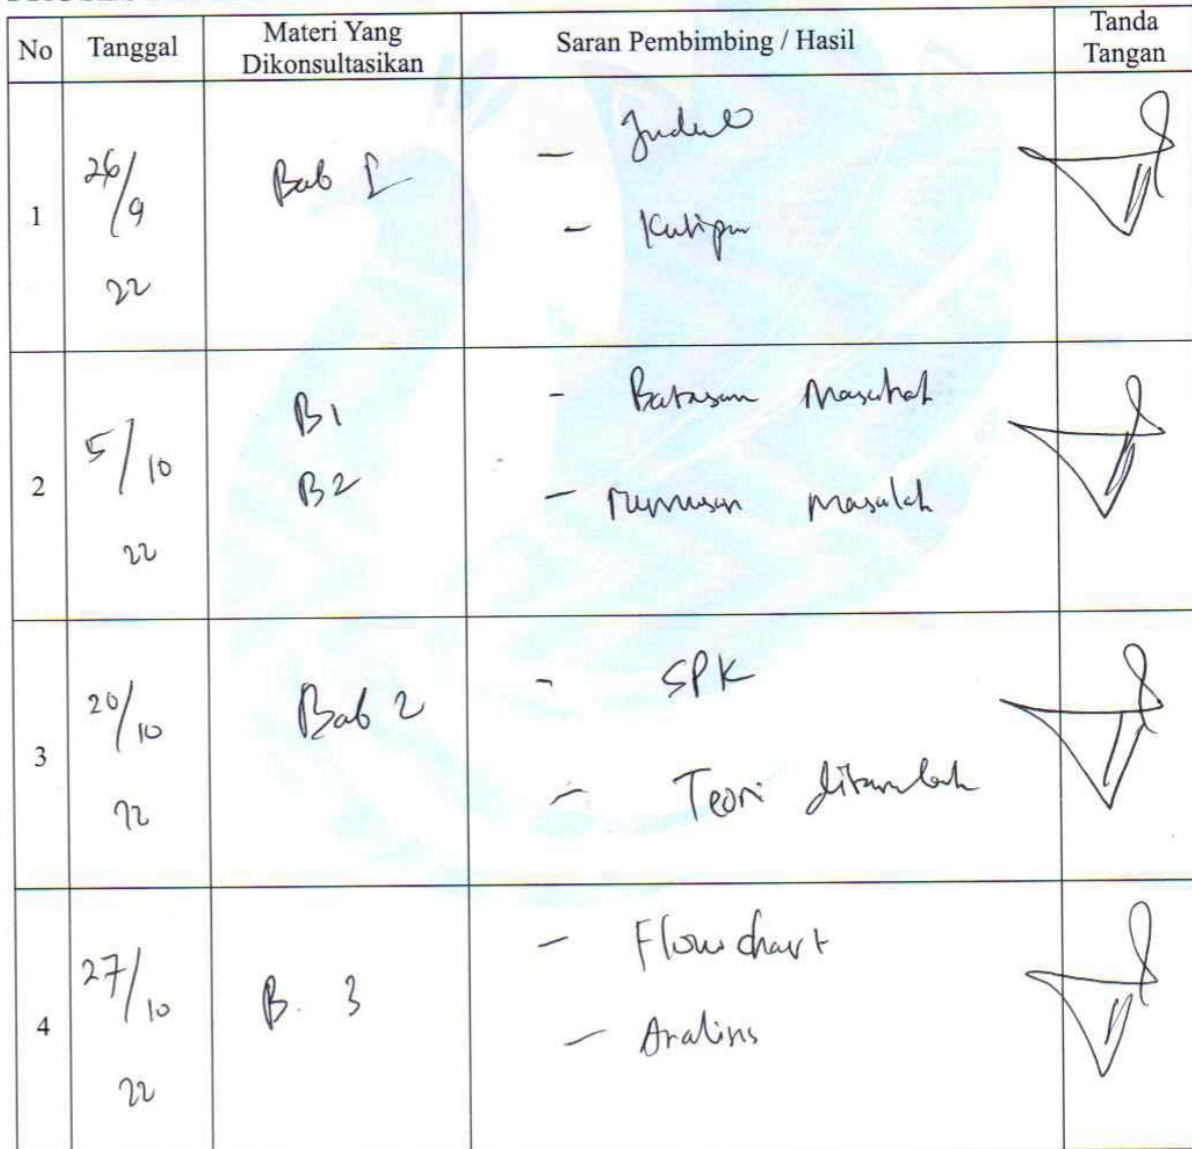 No Tanggal Materi Yang Dikonsultasikan Saran Pembimbing / Hasil Tanda Tangan
1 26/9 22 Bab I - Judul
- Kutipan
2 5/10 22 B1 - Batasan Masalah
B2 - rumusan masalah
3 20/10 22 Bab 2 - SPK
- Teori ditambah
4 27/10 22 B. 3 - Flowchart
- Analisis